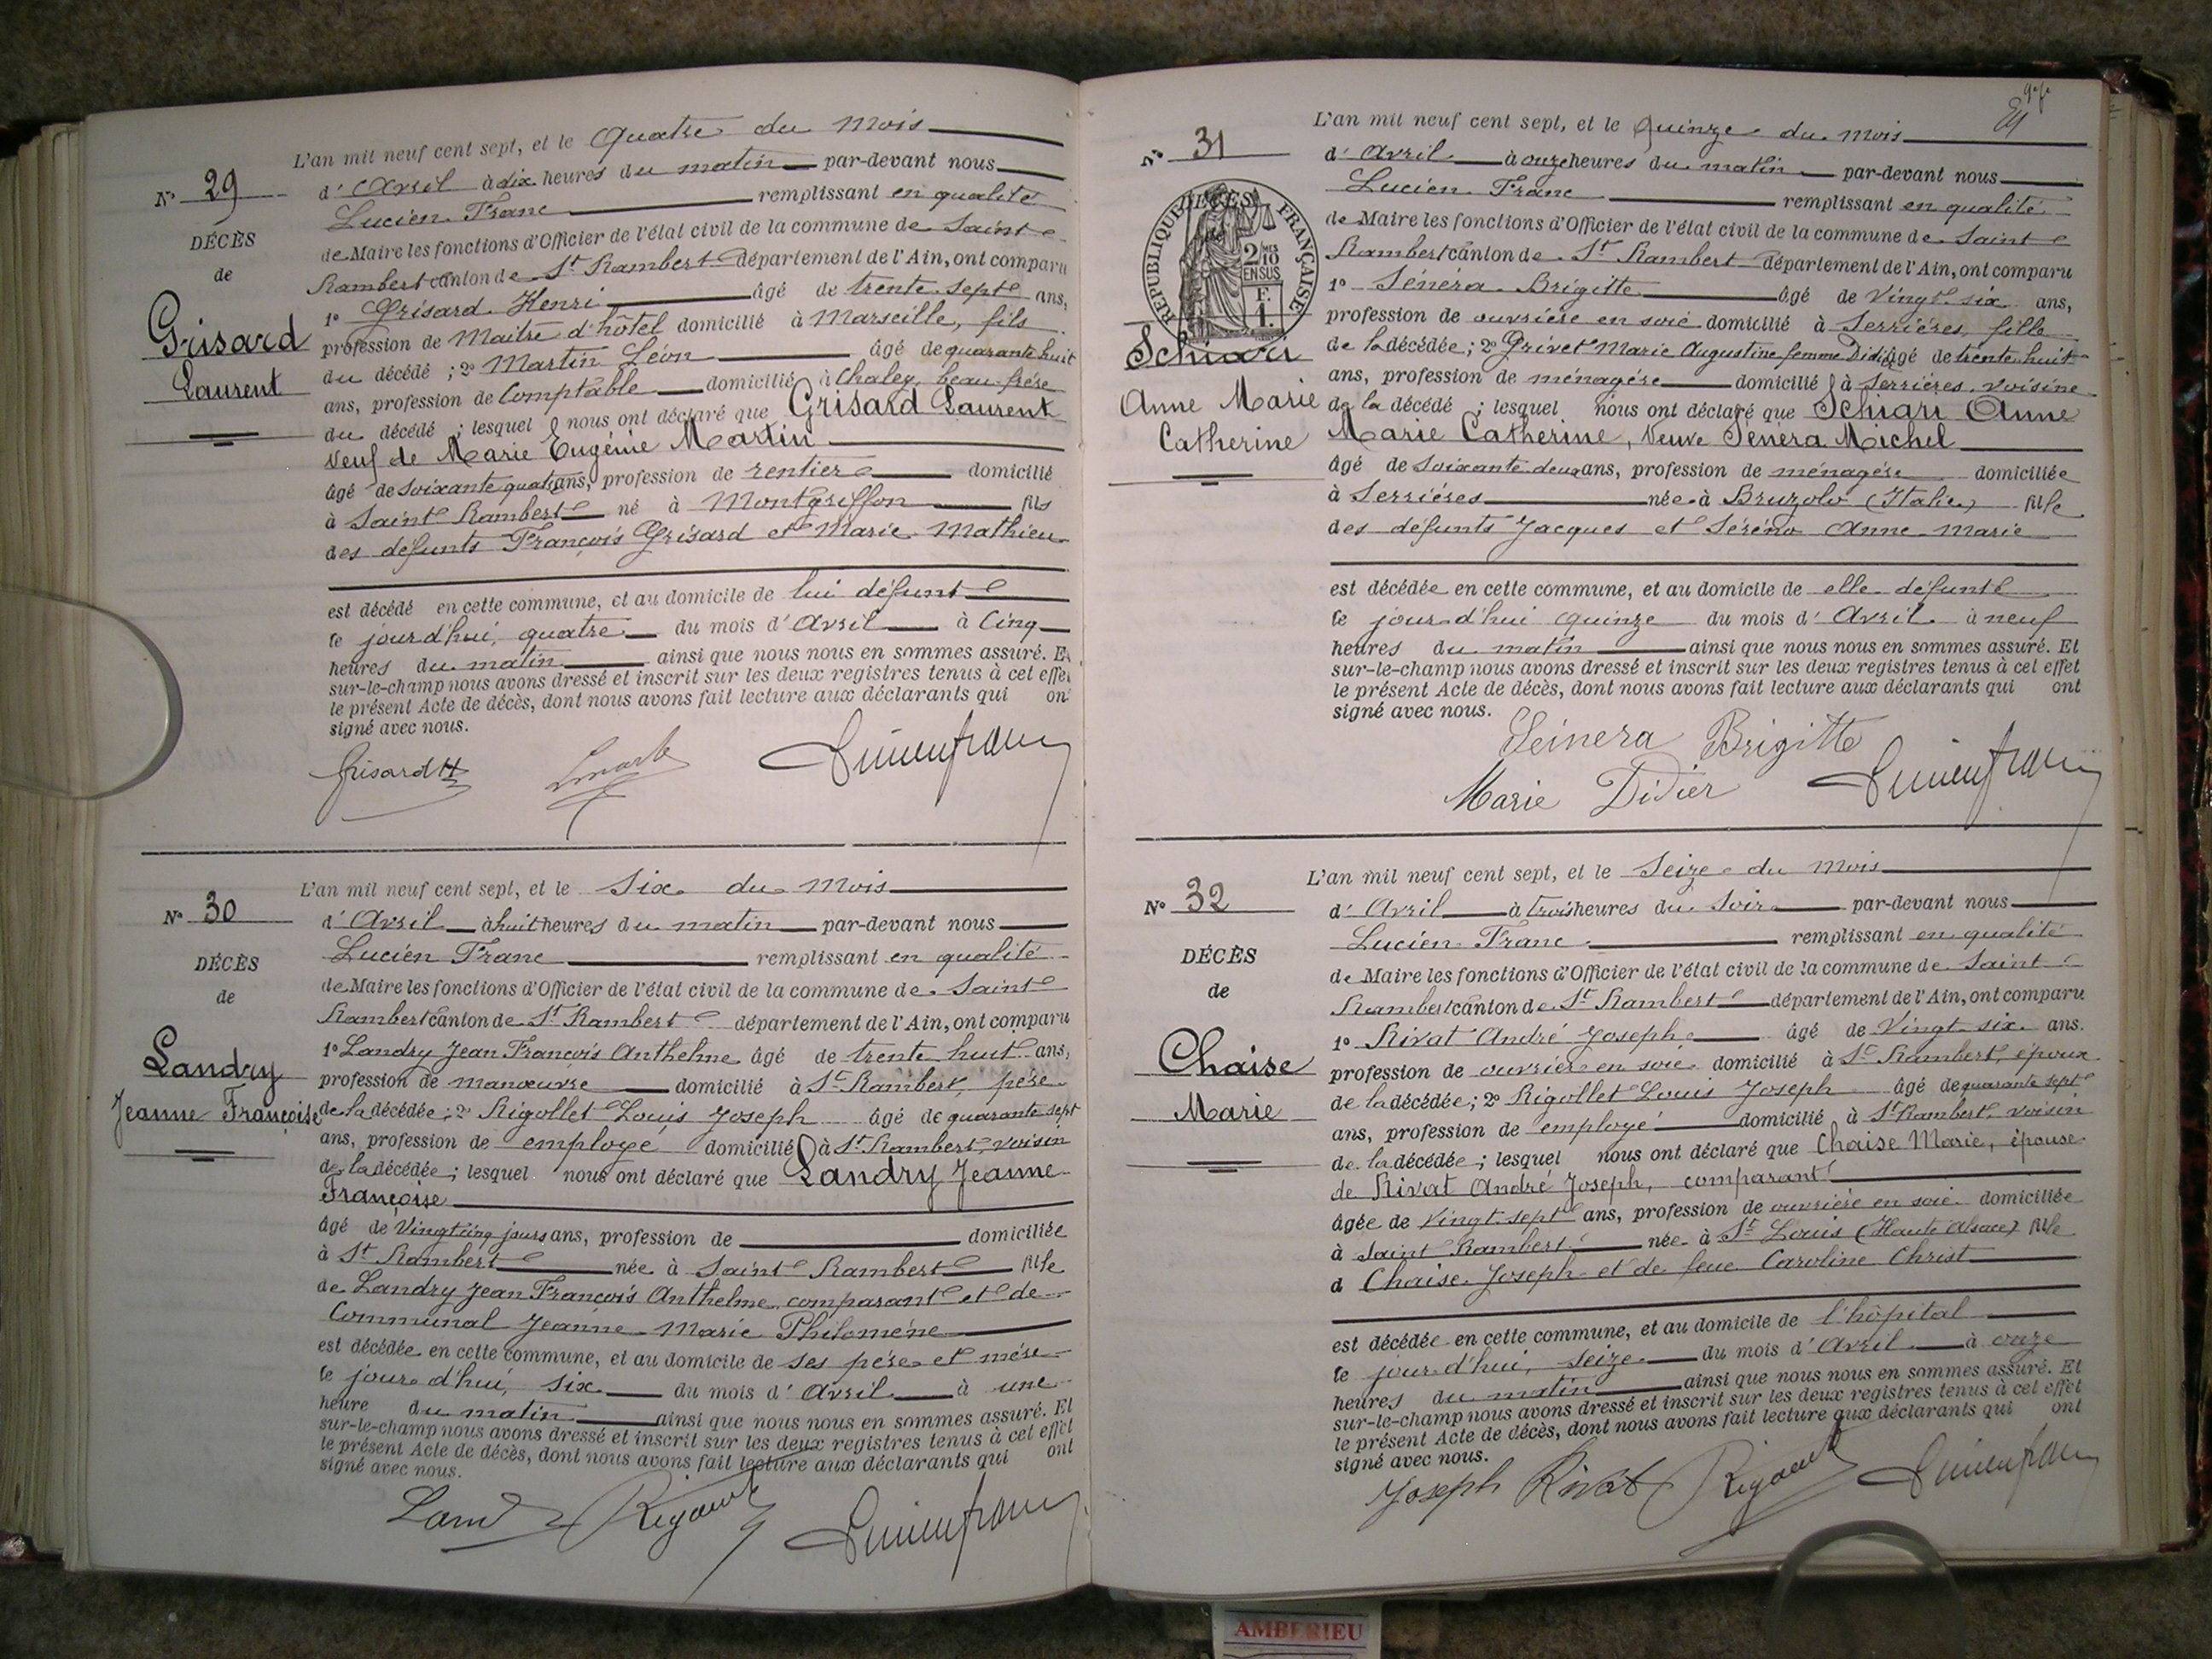 L'an mil neuf cent sept, et le Quatre du mois
N° 29
d'Avril à dix heures du matin par-devant nous
Lucien Franc remplissant en qualité
DÉCÈS
de Maire les fonctions d'Officier de l'état civil de la commune de Saint
de
Rambert canton de St Rambert département de l'Ain, ont comparu
Grisard
1° Grisard Henri âgé de trente sept ans,
profession de Maître d'hôtel domicilié à Marseille, fils
Laurent
du décédé ; 2° Martin Léon âgé de quarante huit
ans, profession de Comptable domicilié à Chaley, beau-frère
du décédé ; lesquel nous ont déclaré que Grisard Laurent
Veuf de Marie Eugénie Martin
âgé de soixante quatre ans, profession de rentier domicilié
à Saint Rambert né à Montgriffon fils
des défunts François Grisard et Marie Mathieu
est décédé en cette commune, et au domicile de lui défunt
le jourd'hui, quatre du mois d'Avril à Cinq
heures du matin ainsi que nous nous en sommes assuré. Et
sur-le-champ nous avons dressé et inscrit sur les deux registres tenus à cet effet
le présent Acte de décès, dont nous avons fait lecture aux déclarants qui ont
signé avec nous.
Grisard H
L'an mil neuf cent sept, et le Six du mois
N° 30
d'Avril à huit heures du matin par-devant nous
Lucien Franc remplissant en qualité
DÉCÈS
de Maire les fonctions d'Officier de l'état civil de la commune de Saint
de
Rambert canton de St Rambert département de l'Ain, ont comparu
Landry
1° Landry Jean François Anthelme âgé de trente huit ans,
profession de manœuvre domicilié à St Rambert, père
Jeanne Françoise
de la décédée ; 2° Rigollet Louis Joseph âgé de quarante sept
ans, profession de employé domicilié à St Rambert, voisin
de la décédée ; lesquel nous ont déclaré que Landry Jeanne
Françoise
âgé de Vingt cinq jours ans, profession de domiciliée
à St Rambert née à Saint Rambert fille
de Landry Jean François Anthelme, comparant et de
Communal Jeanne Marie Philomène
est décédée en cette commune, et au domicile de ses père et mère
le jourd'hui, six du mois d'Avril à une
heure du matin ainsi que nous nous en sommes assuré. Et
sur-le-champ nous avons dressé et inscrit sur les deux registres tenus à cet effet
le présent Acte de décès, dont nous avons fait lecture aux déclarants qui ont
signé avec nous.
L'an mil neuf cent sept, et le Quinze du mois
N° 31
d'Avril à onze heures du matin par-devant nous
Lucien Franc remplissant en qualité
DÉCÈS
RÉPUBLIQUE FRANÇAISE
2 MES
10
EN SUS
F.
1.
de Maire les fonctions d'Officier de l'état civil de la commune de Saint
Rambert canton de St Rambert département de l'Ain, ont comparu
1° Sénéra Brigitte âgé de Vingt six ans,
profession de ouvrière en soie domicilié à Serrières, fille
Schiari
de la décédée ; 2° Grivet Marie Augustine femme Didier âgé de trente huit
ans, profession de ménagère domicilié à Serrières, voisine
Anne Marie
de la décédé ; lesquel nous ont déclaré que Schiari Anne
Catherine
Marie Catherine, Veuve Sénéra Michel
âgé de Soixante deux ans, profession de ménagère domiciliée
à Serrières née à Bruzolo (Italie) fille
des défunts Jacques et Séréno Anne Marie
est décédée en cette commune, et au domicile de elle défunte
le jourd'hui quinze du mois d'Avril à neuf
heures du matin ainsi que nous nous en sommes assuré. Et
sur-le-champ nous avons dressé et inscrit sur les deux registres tenus à cet effet
le présent Acte de décès, dont nous avons fait lecture aux déclarants qui ont
signé avec nous.
Seinera Brigitte
Marie Didier
L'an mil neuf cent sept, et le Seize du mois
N° 32
d'Avril à trois heures du Soir par-devant nous
Lucien Franc remplissant en qualité
DÉCÈS
de Maire les fonctions d'Officier de l'état civil de la commune de Saint
de
Rambert canton de St Rambert département de l'Ain, ont comparu
Chaise
1° Rivat André Joseph âgé de Vingt six ans.
profession de ouvrier en soie domicilié à St Rambert, époux
Marie
de la décédée ; 2° Rigollet Louis Joseph âgé de quarante sept
ans, profession de employé domicilié à St Rambert, voisin
de la décédée ; lesquel nous ont déclaré que Chaise Marie, épouse
de Rivat André Joseph, comparant
âgée de Vingt sept ans, profession de ouvrière en soie domiciliée
à Saint Rambert née à St Louis (Haute Alsace) fille
d Chaise Joseph et de feue Caroline Christ
est décédée en cette commune, et au domicile de l'hôpital
le jourd'hui, seize du mois d'Avril à onze
heures du matin ainsi que nous nous en sommes assuré. Et
sur-le-champ nous avons dressé et inscrit sur les deux registres tenus à cet effet
le présent Acte de décès, dont nous avons fait lecture aux déclarants qui ont
signé avec nous.
Joseph Rivat
AMBERIEU